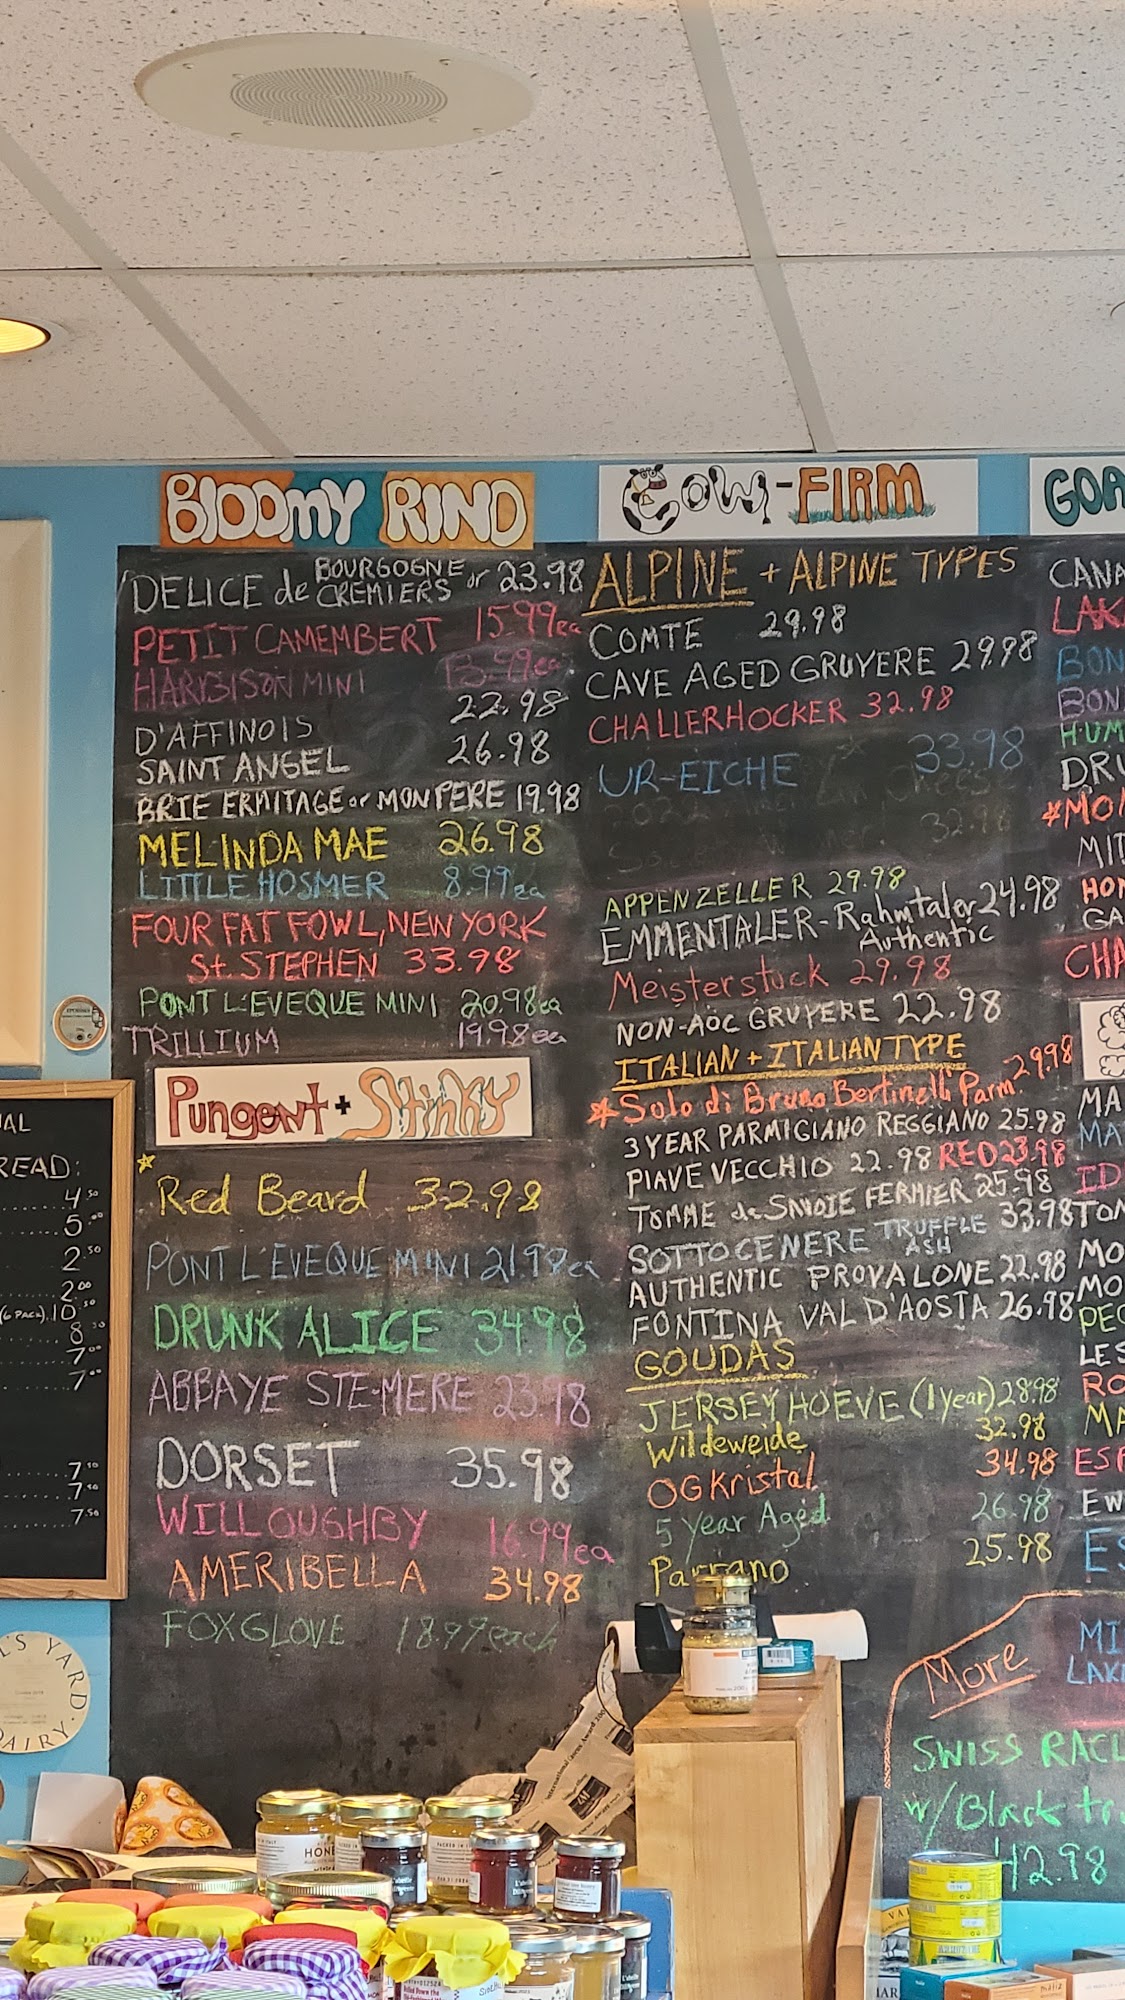 BLOOMY RIND
DELICE de BOURGOGNE or CREMIERS 23.98
PETIT CAMEMBERT 15.99ea
HARBISON MINI
D'AFFINOIS 22.98
SAINT ANGEL 26.98
BRIE ERMITAGE or MON PERE 19.98
MELINDA MAE 26.98
LITTLE HOSMER 8.99ea
FOUR FAT FOWL, NEW YORK
St. STEPHEN 33.98
PONT L'EVEQUE MINI 20.98ea
TRILLIUM 19.98ea
Pungent + Stinky
Red Beard 32.98
PONT L'EVEQUE MINI 21.98ea
DRUNK ALICE 34.98
ABBAYE STE-MERE 23.98
DORSET 35.98
WILLOUGHBY 16.99ea
AMERIBELLA 34.98
FOXGLOVE 18.99each
Cow-FIRM
ALPINE + ALPINE TYPES
COMTE 29.98
CAVE AGED GRUYERE 29.98
CHALLERHOCKER 32.98
UR-EICHE 33.98
APPENZELLER 29.98
EMMENTALER-Rahmtaler 24.98
Authentic
Meisterstuck 29.98
NON-AOC GRUYERE 22.98
ITALIAN + ITALIAN TYPE
*Solo di Bruno Bertinelli Parm 29.98
3 YEAR PARMIGIANO REGGIANO 25.98
PIAVE VECCHIO 22.98 RED 23.98
TOMME de SAVOIE FERMIER 25.98
SOTTOCENERE TRUFFLE ASH 33.98
AUTHENTIC PROVALONE 22.98
FONTINA VAL D'AOSTA 26.98
GOUDAS
JERSEYHOEVE (1 year) 28.98
Wildeweide 32.98
OG Kristal 34.98
5 Year Aged 26.98
Parrano 25.98
GOA
CANA
LAK
BON
BON
HUM
DRU
*MO
MIT
HON
GA
CHA
MA
MA
ID
TOM
MO
MO
PEC
LES
RO
MA
ESP
EW
ES
More
MI
LAK
SWISS RACL
w/Black tr
42.98
READ:
4.50
5.00
2.50
2.00
(6 PACK) 10.50
7.50
HONE